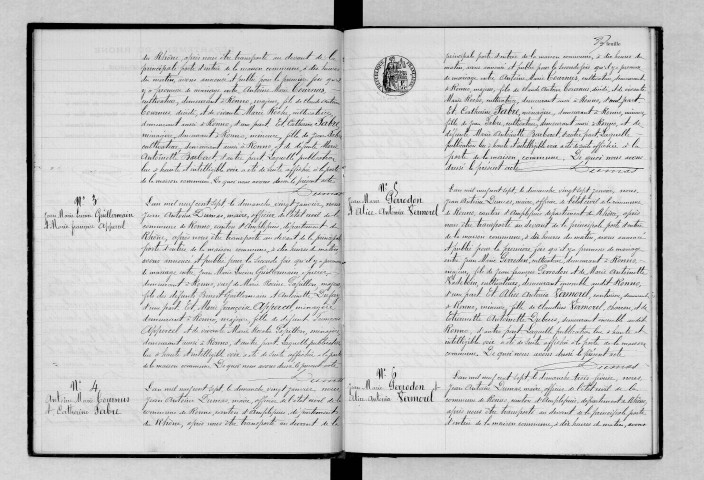 du Rhône, après nous être transporté au devant de la
principale porte d'entrée de la maison commune, à dix heures
du matin, avons annoncé et publié pour la première fois qu'il
y a promesse de mariage entre Antoine Marie
cultivateur, demeurant à Ronno, majeur, fils de Claude Antoine
et de vivante Marie Roche, cultivatrice,
demeurant aussi à Ronno, d'une part Et Catherine Fabre,
ménagère, demeurant à Ronno, mineure, fille de Jean Fabre,
cultivateur, demeurant aussi à Ronno et de défunte Marie
Antoinette Barbat d'autre part Laquelle publication
lue à haute et intelligible voix a été de suite affichée à la porte
de la maison commune. De quoi nous avons dressé le présent acte.
Dumas
N° 3
Jean Marie Guillermain
et Marie françoise
L'an mil neuf cent sept, le dimanche vingt janvier, nous
Jean Antoine Dumas, maire, officier de l'état civil de la
commune de Ronno, canton d'Amplepuis, département du
Rhône, après nous être transporté au devant de la principale
porte d'entrée de la maison commune, à dix heures du matin
avons annoncé et publié pour la seconde fois qu'il y a promesse
de mariage entre Jean Marie Guillermain
demeurant à Ronno, veuf de Marie Papillon, majeur
fils de défunts Benoit Guillermain et Antoinette
d'une part Et Marie françoise ménagère
demeurant à Ronno, majeure, fille de défunt
et de vivante Marie Papillon, ménagère
demeurant aussi à Ronno, d'autre part, Laquelle publication
lue à haute et intelligible voix a été de suite affichée à la porte
de la maison commune. De quoi nous avons dressé le présent acte.
Dumas
N° 4
Antoine Marie
et Catherine Fabre
L'an mil neuf cent sept, le dimanche vingt janvier, nous
Jean Antoine Dumas, maire, officier de l'état civil de la
commune de Ronno, canton d'Amplepuis, département
du Rhône, après nous être transporté au devant de la
feuille
principale porte d'entrée de la maison commune, à dix heures du
matin, avons annoncé et publié pour la seconde fois qu'il y a promesse
de mariage entre Antoine Marie cultivateur, demeurant
à Ronno, majeur, fils de Claude Antoine et de vivante
Marie Roche, cultivatrice, demeurant aussi à Ronno, d'une part
Et Catherine Fabre, ménagère, demeurant à Ronno, mineure,
fille de Jean Fabre, cultivateur, demeurant aussi à Ronno, et de
défunte Marie Antoinette Barbat d'autre part Laquelle
publication lue à haute et intelligible voix a été de suite affichée à la
porte de la maison commune. De quoi nous avons
dressé le présent acte.
Dumas
N° 5
Jean Marie Perrodon
et Alice Antonia Vermorel
L'an mil neuf cent sept, le dimanche vingt sept janvier, nous
Jean Antoine Dumas, maire, officier de l'état civil de la commune
de Ronno, canton d'Amplepuis, département du Rhône, après
nous être transporté au devant de la principale porte d'entrée
de la maison commune, à dix heures du matin, avons annoncé
et publié pour la première fois qu'il y a promesse de mariage
entre Jean Marie Perrodon, cultivateur, demeurant à Ronno,
majeur, fils de Jean françois Perrodon et de Marie Antoinette
cultivateurs, demeurant ensemble audit Ronno,
d'une part Et Alice Antonia Vermorel, couturière, demeurant
à Ronno, mineure, fille de Claudius Vermorel, et de
Etiennette Antoinette demeurant ensemble audit
Ronno, d'autre part, Laquelle publication lue à haute et
intelligible voix a été de suite affichée à la porte de la maison
commune. De quoi nous avons dressé le présent acte.
Dumas
N° 6
Jean Marie Perrodon et
Alice Antonia Vermorel
L'an mil neuf cent sept, le dimanche trois février, nous,
Jean Antoine Dumas, maire, officier de l'état civil de la
commune de Ronno, canton d'Amplepuis, département du Rhône,
après nous être transporté au devant de la principale porte
d'entrée de la maison commune, à dix heures du matin, avons